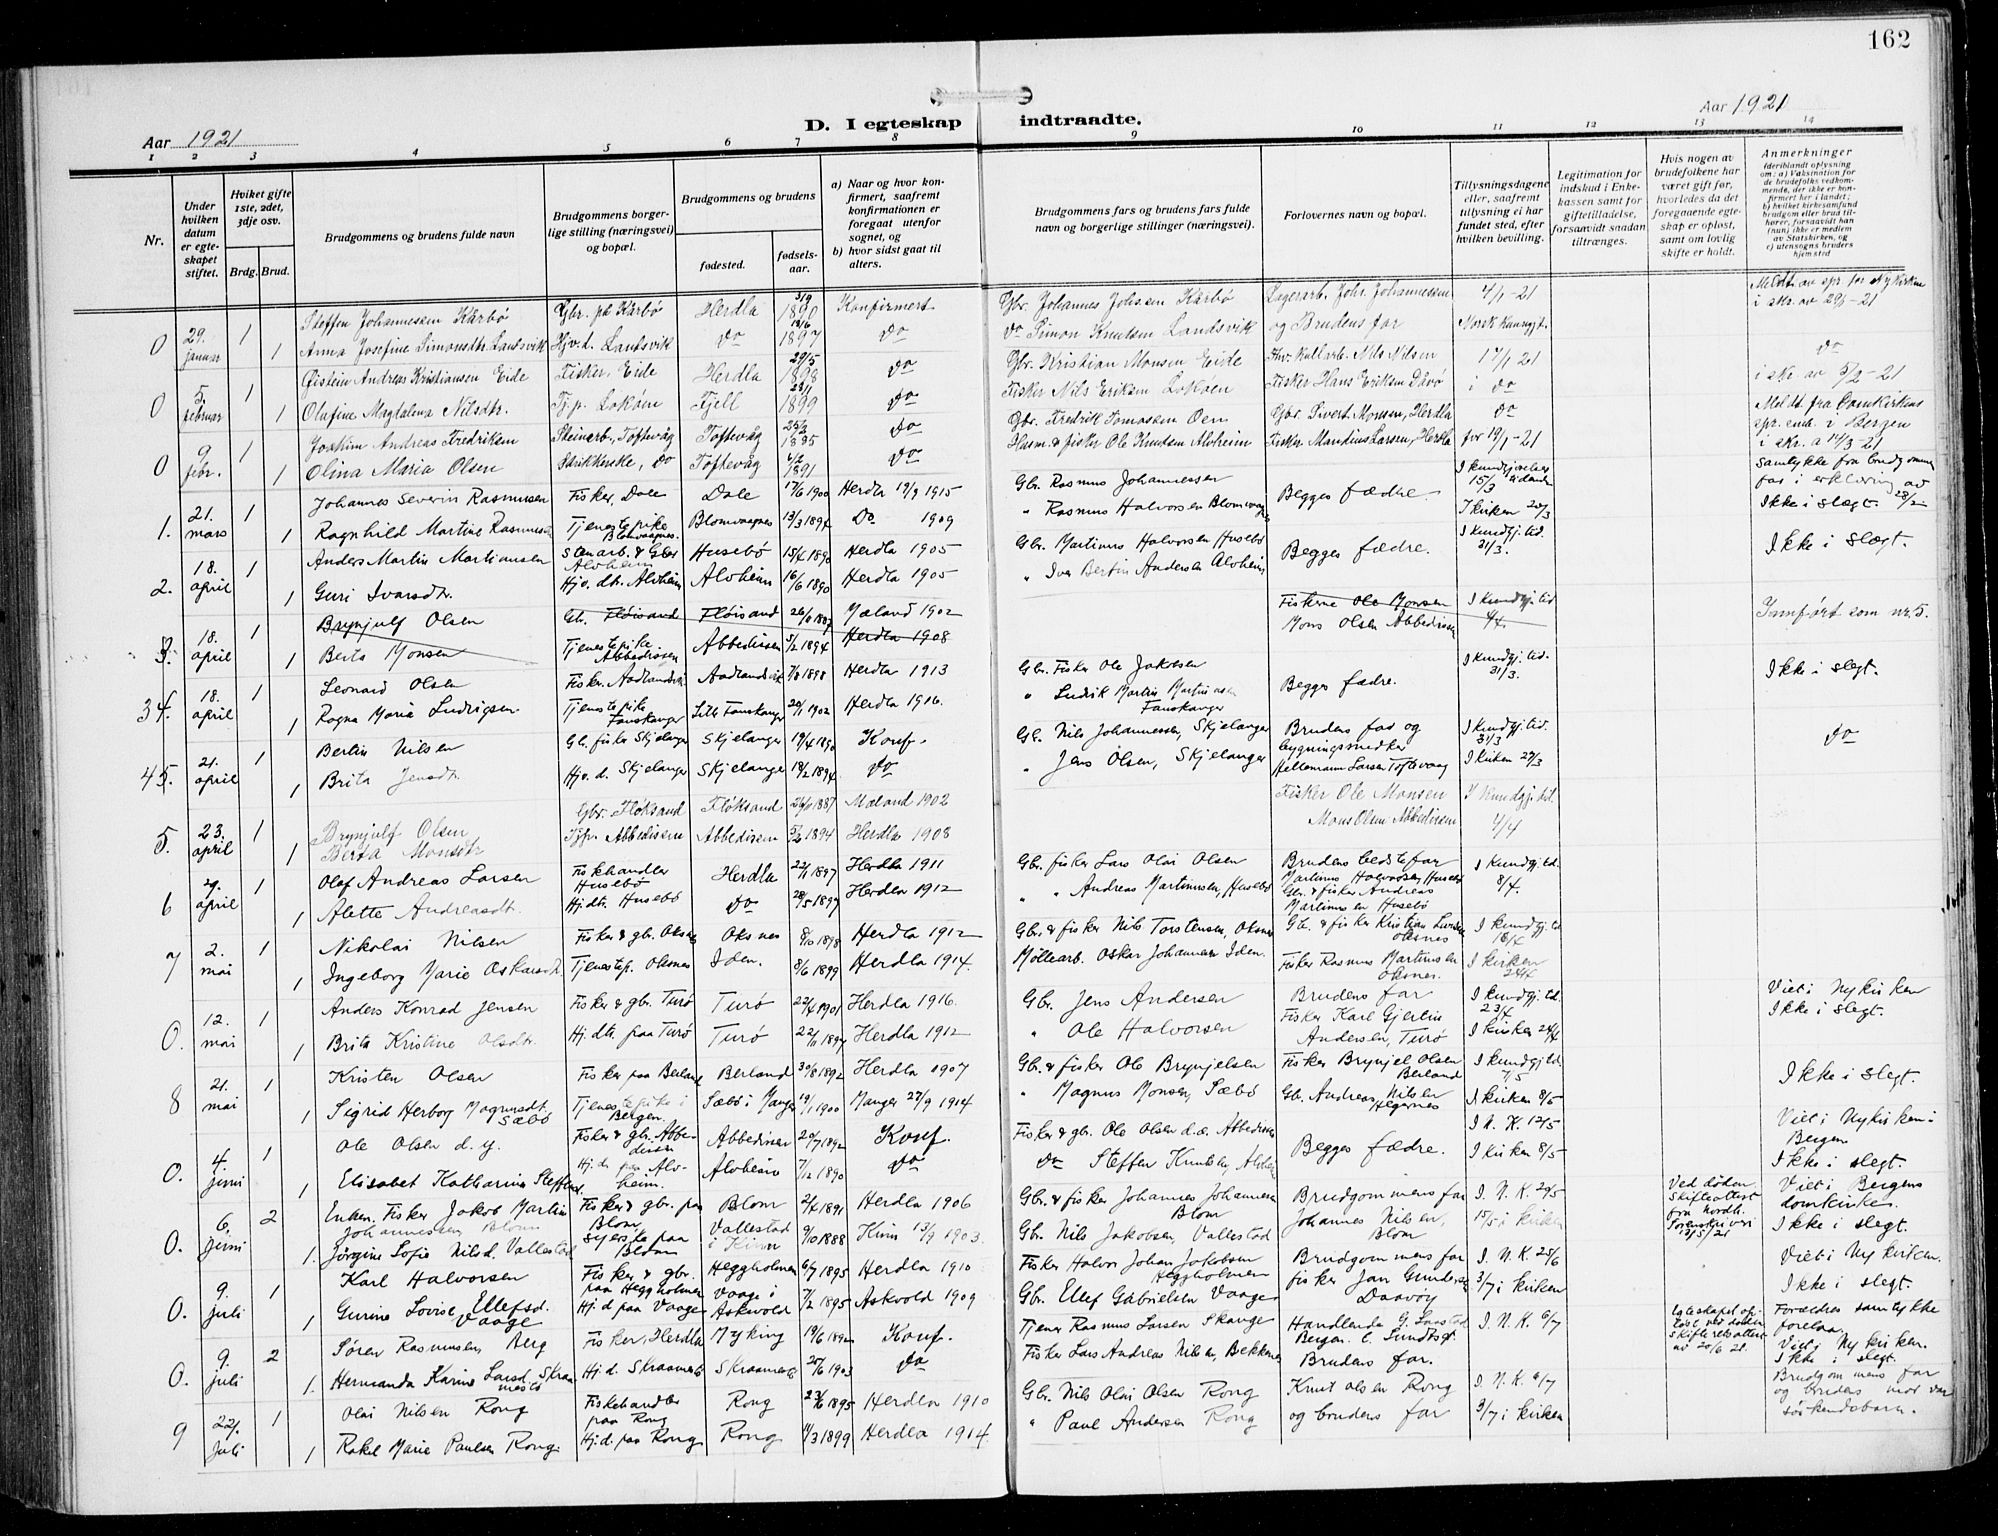 162
Aar 1921
D. I egteskap indtraadte.
Aar 1921
1 2 3 4 5 6 7 8 9 10 11 12 13 14
Nr.
Under hvilken datum er egteskapet stiftet.
Hviket gifte 1ste, 2det, 3dje osv.
Brdg. Brud.
Brudgommens og brudens fulde navn
Brudgommens borgerlige stilling (næringsvei) og bopæl.
Brudgommens og brudens
fødested.
fødselsaar.
a) Naar og hvor konfirmert, saafremt konfirmationen er foregaat utenfor sognet, og
b) hvor sidst gaat til alters.
Brudgommens fars og brudens fars fulde navn og borgerlige stillinger (næringsvei).
Forlovernes navn og bopæl.
Tillysningsdagene eller, saafremt tillysning ei har fundet sted, efter hvilken bevilling.
Legitimation for indskud i Enkekassen samt for giftetilladelse, forsaavidt saadan tiltrænges.
Hvis nogen av brudefolkene har været gift før, hvorledes da det foregaaende egteskap er opløst, samt om lovlig skifte er holdt.
Anmerkninger
(deriblandt oplysning om: a) Vaksination for de brudefolks vedkommende, der ikke er konfirmert her i landet; b) hvilket kirkesamfund brudgom eller brud tilhører, forsaavidt han (hun) ikke er medlem av Statskirken, og c) utensogns bruders hjemsted
0 29. januar 1 Steffen Johannesen Kårbø Gbr. på Kårbø Herdla 1890 Konfirmert Gbr. Johannes Johsen Kårbø Lagerarb. Johs. Johannesen 4/1-21
1 Anna Josefine Simonsdtr. Landsvik Hjv. d. Landsvik do 1897 do do Simon Knutsen Landsvik og Brudens far
0 5. februar 1 Øistein Andreas Kristiansen Eide Fisker, Eide Herdla 29/5 1898 do Gbr. Kristian Monsen Eide Nils Nilsen 17/1 21 do
1 Olafine Magdalena Nilsdtr. Tj.p. Lokøen Fjell 1899 do Fisker Nils Eriksen Lokøen Fisker Hans Eriksen i do i skr. av 5/2-21
0 9 febr. 1 Joakim Andreas Fredriksen Steinarb., Toftevåg Toftevåg 25/2 1895 do Gbr. Fredrik Tomassen Oen Gbr. Sivert Monsen, Herdla do
1 Olina Maria Olsen Strikkerske, do Toftevåg 6/2 1891 do Husm. & fisker Ole Knutsen Alvheim Fisker Mandius Larsen, Herdla
1. 21. mars 1 Johannes Severin Rasmussen Fisker, Dale Dale 17/6 1900 Herdla 19/9 1915 Gbr. Rasmus Johannessen Begges fædre. 15/3
1 Ragnhild Martine Rasmusen Tjenestepike Blomvaagnes. Blomvaagnes 13/3 1894 Do 1909 " Rasmus Halvorsen Blomvaagnes I kirken 20/3 Ikke i slegt.
2. 18. april 1 Anders Martin Martinusen Stenarb. & Gbr Alvheim Husebø 15/4 1890 Herdla 1905 Gbr. Martinus Halvorsen Husebø Begges fædre. I kundgj. tid. 21/3. Ikke i slegt.
1 Guri Ivarsdtr. Hjv. dtr. Alvheim Alvheim 16/6 1890 Herdla 1905 " Iver Bertin Andersen Alvheim
3. 18. april 1 Brynjulf Olsen Gbr. Fløisand Fløisand 26/1 1887 Mæland 1902 Fiskerne Ole Monsen I kundgj. tid 4/4. Innført som nr. 5.
1 Berta Monsen Tjenestepike Abbedissen Abbedissen 5/2 1894 Herdla 1908 Mons Olsen Abbedissen
34. 18. april 1 Leonard Olsen Fisker, Aadlandsvik Aadlandsvik 7/8 1898 Herdla 1913 Gbr. Fisker Ole Jakobsen Begges fædre. I kundgj. tid. 31/3. Ikke i slegt.
1 Ragna Maria Ludvigsen Tjenestepike Fanskanger Litle Fanskanger 20/1 1902 Herdla 1916. " Ludvik Martin Martinusen Fanskanger
45. 21. april 1 Bertin Nilsen Gb. fisker Skjelanger Skjelanger 19/4 1890 Konf. Gb. Nils Johannessen, Skjelanger Brudens far og bygningsmedker I kundgj. tid. 31/3 do
1 Brita Jensdtr. Hjv. d. Skjelanger Skjelanger 18/2 1894. do " Jens Olsen, Skjelanger Hellemann Larsen Toftevaag I kirken 27/3
5. 23. april 1 Brynjulf Olsen Gbr. Fløksand Fløksand 26/1 1887 Mæland 1902 Fisker Ole Monsen I kundgj. tid.
1 Berta Monsdtr Tjp. Abbedissen Abbedissen 5/2 1894 Herdla 1908 Mons Olsen Abbedissen 4/4
6 29. april 1 Olaf Andreas Larsen Fiskhandler Husebø Herdla 22/1 1897 Herdla 1911 Gbr. fisker Lars Olai Olsen Brudens bedstefar Martinus Halvorsen, Husebø I kundgj. td. 8/4.
1 Alette Andreasdt. Hj. dtr. Husebø do 28/5 1897 Herdla 1912 " " Andreas Martinusen, Husebø Gbr. & fisker Andreas Martinusen Husebø
7 2. mai 1 Nikolai Nilsen Fisker & gbr. Oksnes Oksnes 8/10 1898 Herdla 1912 Gbr. & fisker Nils Torstensen, Oksnes Gb. & fisker Kristian Larsen Oksnes I kundgj. td 18/4
1 Ingeborg Marie Oskarsdt. Tjenestep. Oksnes Iden. 8/6 1899 Herdla 1914. Møllearb. Oskar Johannesen Iden. Fisker Rasmus Martinusen Oksnes. I kirken 24/4
0. 12. mai 1 Anders Konrad Jensen Fisker & gbr. Turø Turø 22/4 1901 Herdla 1916. Gbr. Jens Andersen Brudens far I kundgj. td. 23/4 Viet i Nykirken Ikke i slegt.
1 Brita Kristine Olsdtr. Hj. dtr. paa Turø Turø 22/11 1894 Herdla 1912 " Ole Halvorsen Fisker Karl Gjertin Andersen, Turø I kirken 24/4
8 21. mai 1 Kristen Olsen Fisker paa Berland Berland 30/8 1892 Herdla 1907 Gb. & fisker Ole Brynjelsen Fisker Brynjel Olsen Berland I kundgj. td. 7/5 Ikke i slegt.
1 Sigrid Herborg Magnusdt. Sæbø Tjenestepike i Bergen Sæbø i Manger 19/1 1900 Manger 27/9 1914 " Magnus Monsen, Sæbø Gbr. Andreas Nilsen Hegernes I kirken 8/5
0. 4. juni 1 Ole Olsen d. y. Fisker & gbr. Abbedissen Abbedissen 20/7 1892 Konf. Fisker & gbr. Ole Olsen d. e. Abbedissen Begges fædre. I N. K. 12/5 Viet i Nykirken i Bergen
1 Elisabet Katharina Steffensd. Hj. d. paa Alvheim. Alvheim 7/12 1890 do do Steffen Knutsen, Alvheim I kirken 8/5 Ikke i slegt.
0. 6. juni 2 Enkem. Fisker Jakob Martin Johannessen Blom Fisker & gbr. paa Blom Blom 2/4 1891 Herdla 1906 Gbr. & fisker Johannes Johannesen Blom Brudgommens far I. N. K. 24/5 Ved døden. Skifteattest fra Nordh. Sorenskriveri 18/5/21 Viet i Bergens domkirke.
1. Jørgine Sofie Nilsd. Vallestad syerske paa Blom Vallestad i Kinn 9/10 1888 Kinn 13/9 1903. Gbr. Nils Jakobsen, Vallestad Johannes Nilsen, Blom 15/5 i kirken Ikke i slegt.
0. 9. juli 1 Karl Halvorsen Fisker & gbr. paa Heggholmen Heggholmen 6/7 1895 Herdla 1910 Fisker Halvor Johan Jakobsen Heggholmen Brudgommens far I. N. K. 25/6 Viet i Nykirken.
1 Gurine Lovise Ellefsd. Vaage Hj. d. paa Vaage Vaage i Askvold 7/2 1895 Askvold 1909 Gbr. Ellef Gabrielsen Vaage fisker Jan Gundersen Daavøy 3/7 i kirken Ikke i slegt.
0. 9. juli 2 Søren Rasmussen Berg Fisker, Herdla Myking 19/6 1892 Konf. Tjener Rasmus Larsen Skauge Handlende G. Bergen. I. N. K. 6/7 Egteskapet opløst ved døden Skifteretsattest av 20/6 21. Forældres samtykke foreligger
1. Hermanda Karine Larsd. Skraamestø Hj. d. Skraamestø Skraamestø 25/6 1903 do Fisker Lars Andreas Nilsen, Bekken Brudens far. Viet i Nykirken. Ikke i slegt.
9 22/. Juli 1 Olai Nilsen Rong Fiskehandler paa Rong Rong 23/6 1895 Herdla 1910 Gbr. Nils Olai Olsen Rong Knut Olsen Rong I. N. K. 9/7 Brudgommens far og brudens mor var søskendebarn.
1 Rakel Marie Paulsen Rong. Hj. d. paa Rong Rong 11/3 1899 Herdla 1914. " Paul Andersen Rong og brudens far 3/7 i kirken